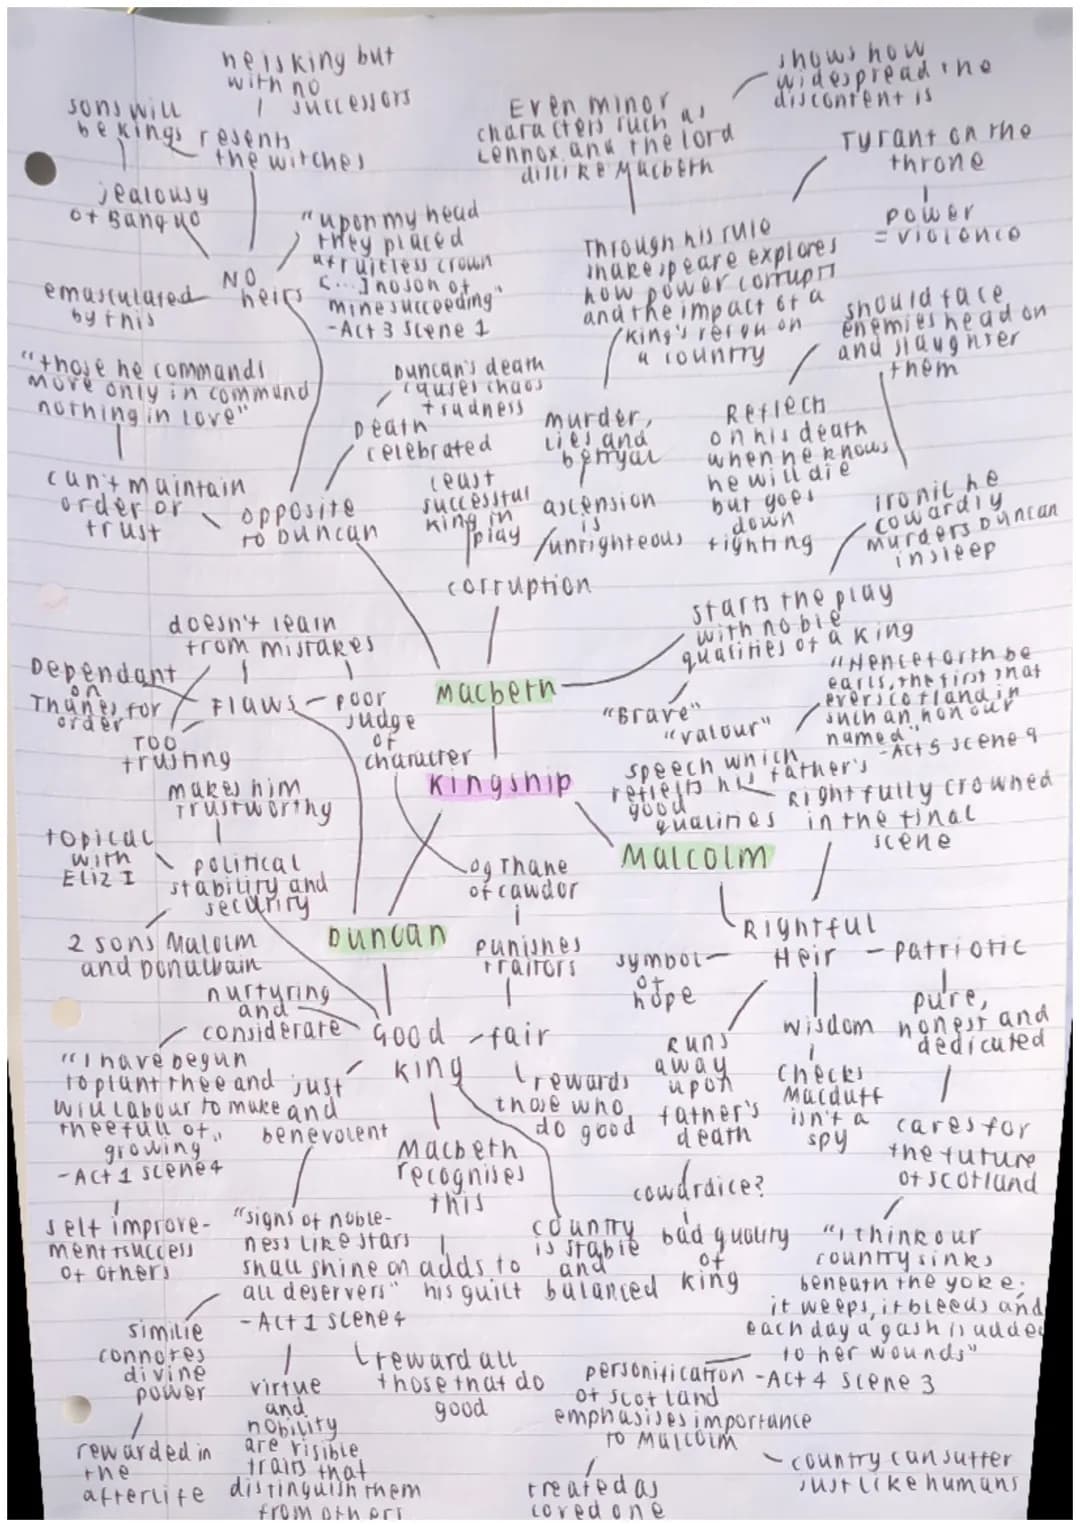 he is king but
with no
successors
sons will
be kings
resents
the witches
jealousy
of Banquo
"upon my head
they placed
a fruitless crown
[...] no son of
mine succeeding"
-Act 3 Scene 1
No
heirs
emasculated
by this
"those he commands
move only in command
nothing in love"
can't maintain
order or
trust
opposite
to Duncan
Duncan's death
causes chaos
+ sadness
Death
celebrated
Even minor
characters such as
Lennox and the lord
dislike Macbeth
shows how
widespread the
discontent is
Tyrant on the
throne
power
= violence
Through his rule
Shakespeare explores
how power corrupts
and the impact of a
king's reign on
a country
murder,
lies and
betryal
ascension
is
unrighteous
least
successful
king in
play
corruption
should face
enemies head on
and slaughter
them
Reflects
on his death
when he knows
he will die
but goes
down
fighting
ironic he
cowardly
murders Duncan
in sleep
starts the play
with noble
qualities of a king
"Brave"
"valour"
Macbeth
Kingship
doesn't learn
from mistakes
Dependant
on
Thanes for
order
Flaws
poor
judge
of
character
Too
trusting
makes him
trustworthy
topical
with
Eliz I
political
stability and
security
2 sons Malolm
and Donalbain
og Thane
of cawdor
punishes
traitors
Duncan
"Henceforth be
earls, the first that
ever scotland in
such an honour
named"
-Act 5 scene 9
speech which
reflects his father's
good
qualities
Rightfully crowned
in the final
scene
Malcolm
Rightful
Heir
patriotic
symbol
of
hope
pure,
honest and
dedicated
wisdom
checks
Macduff
isn't a
spy
Runs
away
upon
father's
death
cowardice?
bad quality
of
king
cares for
the future
of scotland
"I think our
country sinks
beneath the yoke;
it weeps, it bleeds and
each day a gash is added
to her wounds"
-Act 4 scene 3
personification
of scotland
emphasises importance
to Malcolm
treated as
loved one
country can suffer
just like humans
nurturing
and
considerate
Good
king
fair
rewards
those who
do good
"I have begun
to plant thee and
will labour to make
thee full of
growing"
-Act 1 scene 4
self improve-
ment + success
of others
just
and
benevolent
Macbeth
recognises
this
adds to
his guilt
country
is stable
and
balanced
"signs of noble-
ness like stars
shall shine on
all deservers"
-Act 1 scene 4
similie
connotes
divine
power
rewarded in
the
afterlife
virtue
and
nobility
are visible
traits that
distinguish them
from others
reward all
those that do
good